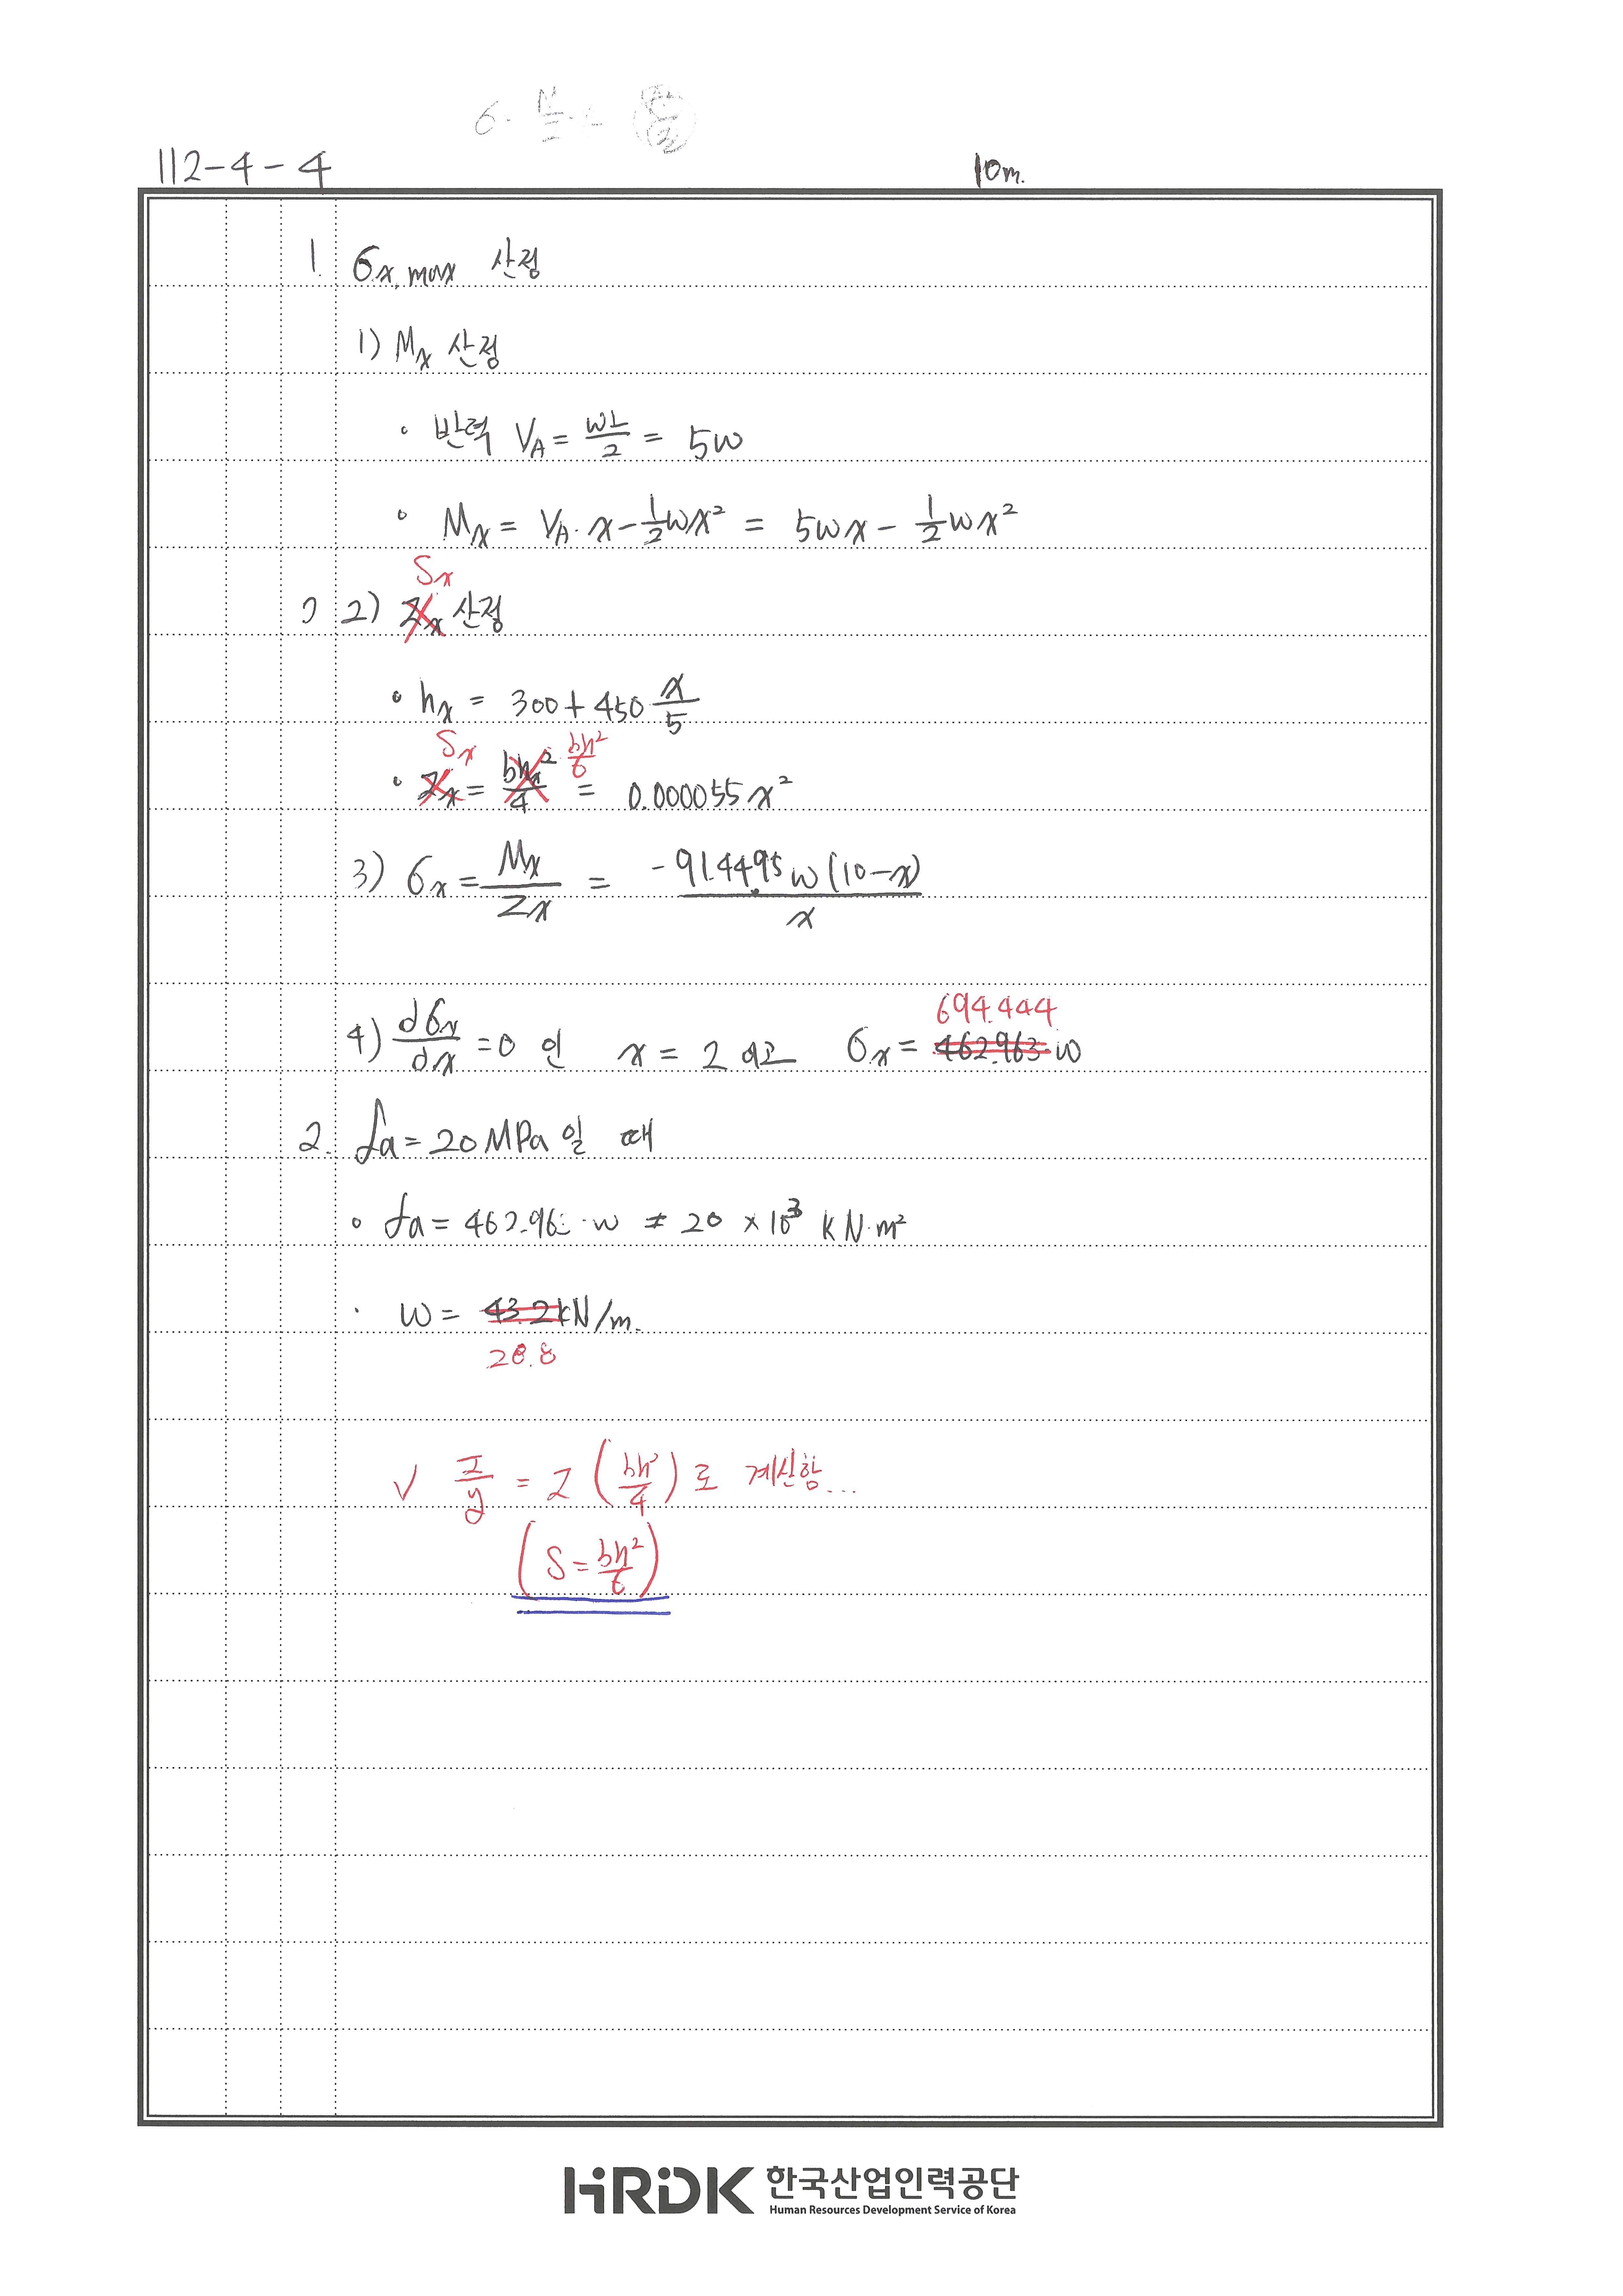 112-4-4
10m.
1. σx,max 산정
1) Mx 산정
• 반력 VA = wL/2 = 5w
• Mx = VA·x - 1/2wx² = 5wx - 1/2wx²
Sx
2) Zx 산정
• hx = 300 + 450 x/5
Sx bh²/6
• Zx = bhx²/4 = 0.000055x²
3) σx = Mx/Zx = -91.4495w(10-x)/x
694.444
4) dσx/dx = 0 인 x = 2 이고 σx = 462.963·w
2. fa = 20MPa 일 때
• fa = 462.963·w ≠ 20 × 10³ kN·m²
• w = 43.2kN/m.
28.8
√ I/y = Z (bh²/4)로 계산함...
(S = bh²/6)
HRDK 한국산업인력공단
Human Resources Development Service of Korea